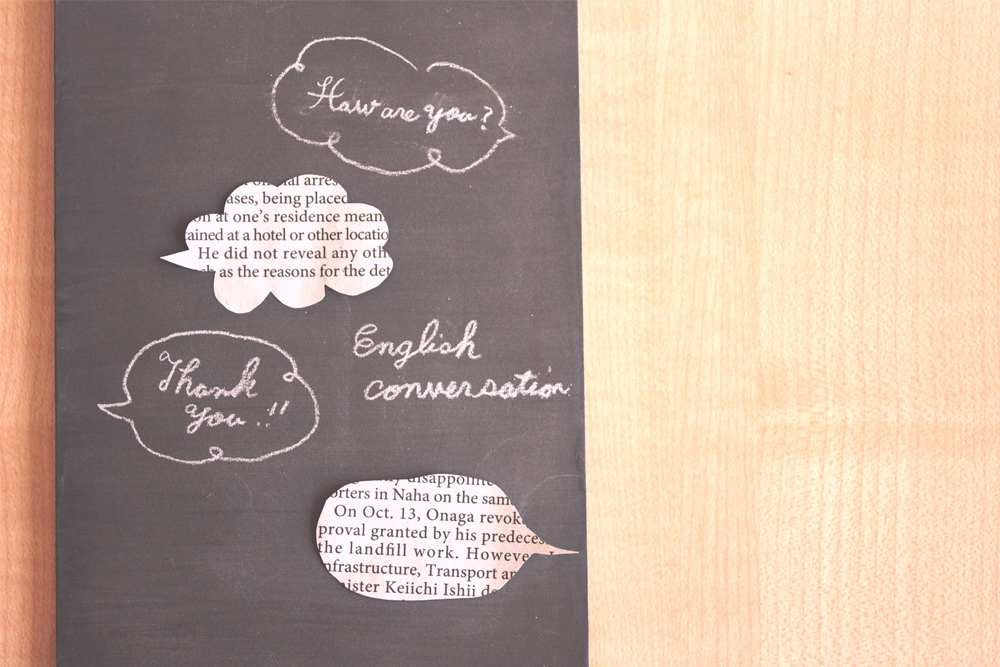 How are you?
arres
ases, being placed
on at one's residence mean
ained at a hotel or other locatio
He did not reveal any oth
as the reasons for the det
English
conversation
Thank
you!!
disappointe
orters in Naha on the sam
On Oct. 13, Onaga revok
proval granted by his predeces
the landfill work. Howeve
nfrastructure, Transport an
ister Keiichi Ishii de